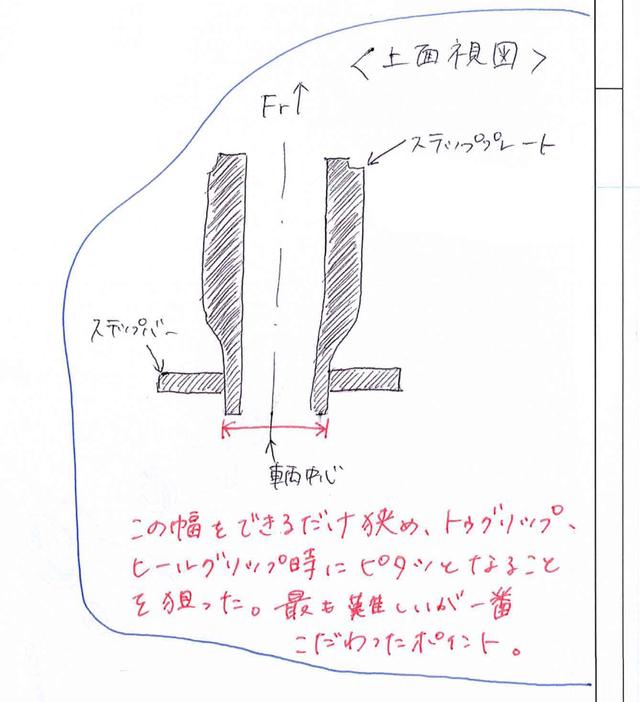 ＜上面視図＞
Fr↑
ステッププレート
ステップバー
車両中心
この幅をできるだけ狭め、トゥグリップ、
ヒールグリップ時にピタッとなること
を狙った。最も難しいが一番
こだわったポイント。